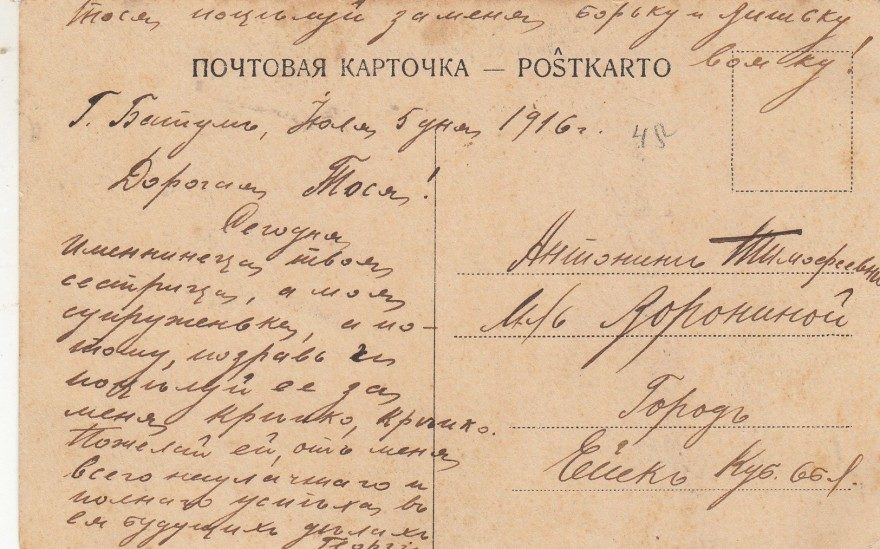 Тося поцѣлуй за меня Борьку и
ПОЧТОВАЯ КАРТОЧКА — POŜTKARTO
Г. Батумъ, Июля 5 дня 1916 г.
48
Дорогая Тося!
Сегодня
именинница твоя
сестрица, а моя
супруженька, а по-
тому, поздравь и
поцѣлуй ее за
меня крѣпко, крѣпко.
Пожелай ей, отъ меня
всего наилучшаго и
полнаго успѣха въ
ея будущихъ дѣлахъ
Георгій
Антонинѣ Тимофеевнѣ
М-ль Ворониной
Городъ
Ейскъ Куб. обл.